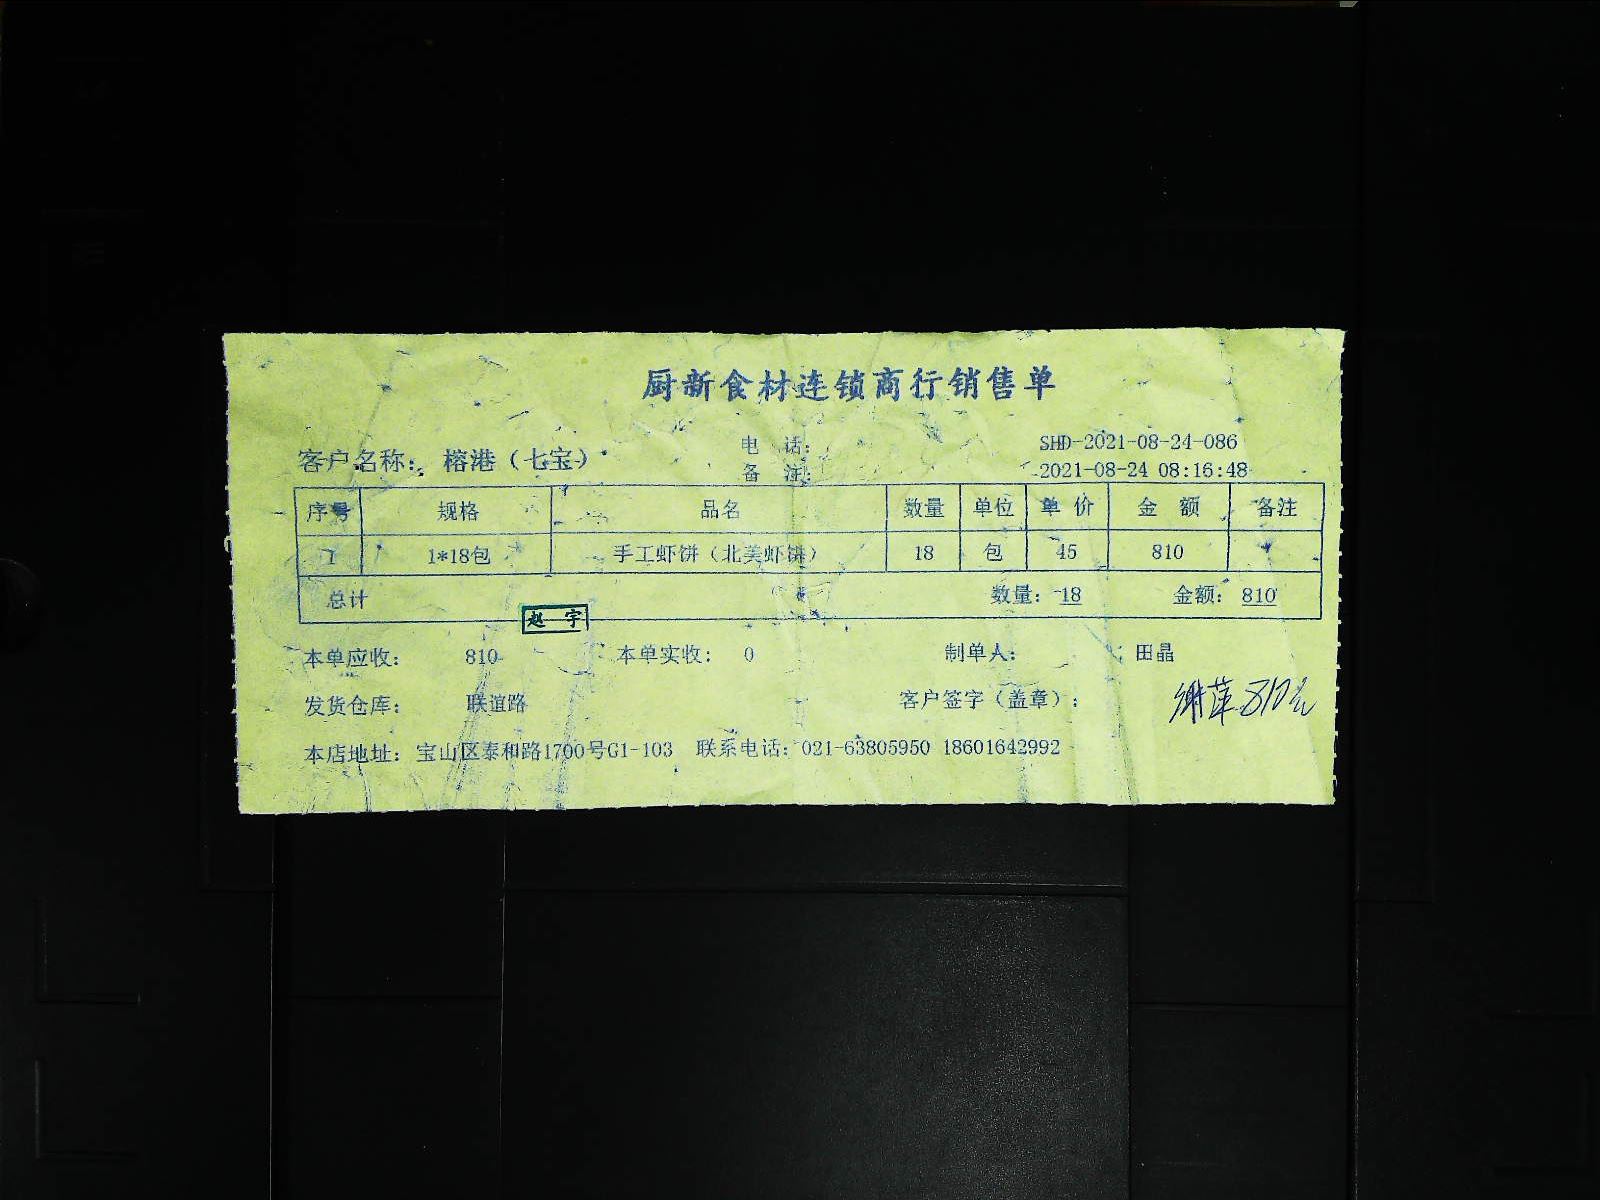 厨新食材连锁商行销售单
电 话： SHD-2021-08-24-086
客户名称： 榕港（七宝）
备 注： 2021-08-24 08:16:48
序号 规格 品名 数量 单位 单 价 金 额 备注
1 1*18包 手工虾饼（北美虾饼） 18 包 45 810
总计 数量： 18 金额： 810
赵 宇
本单应收： 810 本单实收： 0 制单人： 田晶
发货仓库： 联谊路 客户签字（盖章）： 谢萍 810元
本店地址： 宝山区泰和路1700号G1-103 联系电话： 021-63805950 18601642992